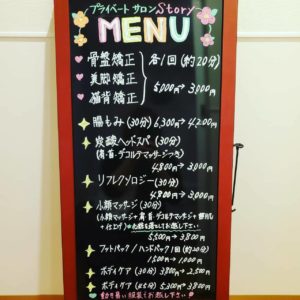 プライベートサロンStory
MENU
骨盤矯正
美脚矯正
猫背矯正
各1回(約20分)
5,000→3,000
腸もみ(30分) 6,300→4,200
炭酸ヘッドスパ(30分)
(肩・首・デコルテマッサージつき)
4,800→3,000円
リフレクソロジー(30分)
4,800→3,000円
小顔マッサージ(30分)
(小顔マッサージ+肩・首・デコルテマッサージ+
+仕上げ)
5,500→3,800円
フットパック/ハンドパック1回(20分)
1500→1,000円
ボディケア(30分) 3,800→2,500円
ボディケア(45分) 5,300→3,800円
動き易い服装でお越し下さい